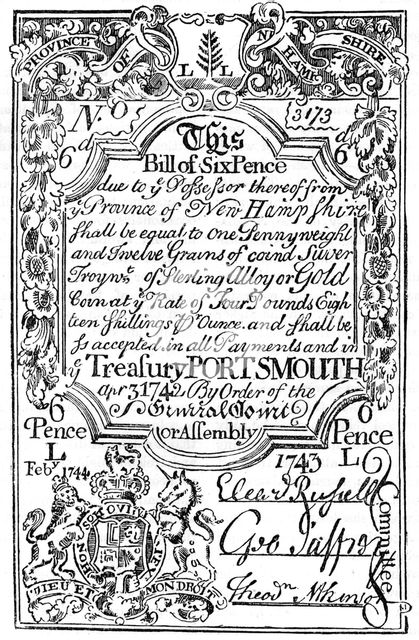 PROVINCE OF N: HAMP SHIRE
L L
No 3173
6d 6d
This
Bill of SixPence
due to ye Possessor thereof from
ye Province of New Hampshire
shall be equal to one Pennyweight
and Twelve Grains of coind Silver
Troywt. of Sterling Alloy or Gold
Coin at ye Rate of Four Pounds Eigh
teen Shillings P Ounce. and shall be
so accepted in all Payments and in
ye Treasury PORTSMOUTH
apr 3 1742 By Order of the
General Court
or Assembly
6 Pence 6 Pence
L L
Feby 1744 1743
HONI SOIT QUI
DIEU ET MON DROIT
Elear Russell
Geo Jaffrey
Theodr Atkinson
Committee